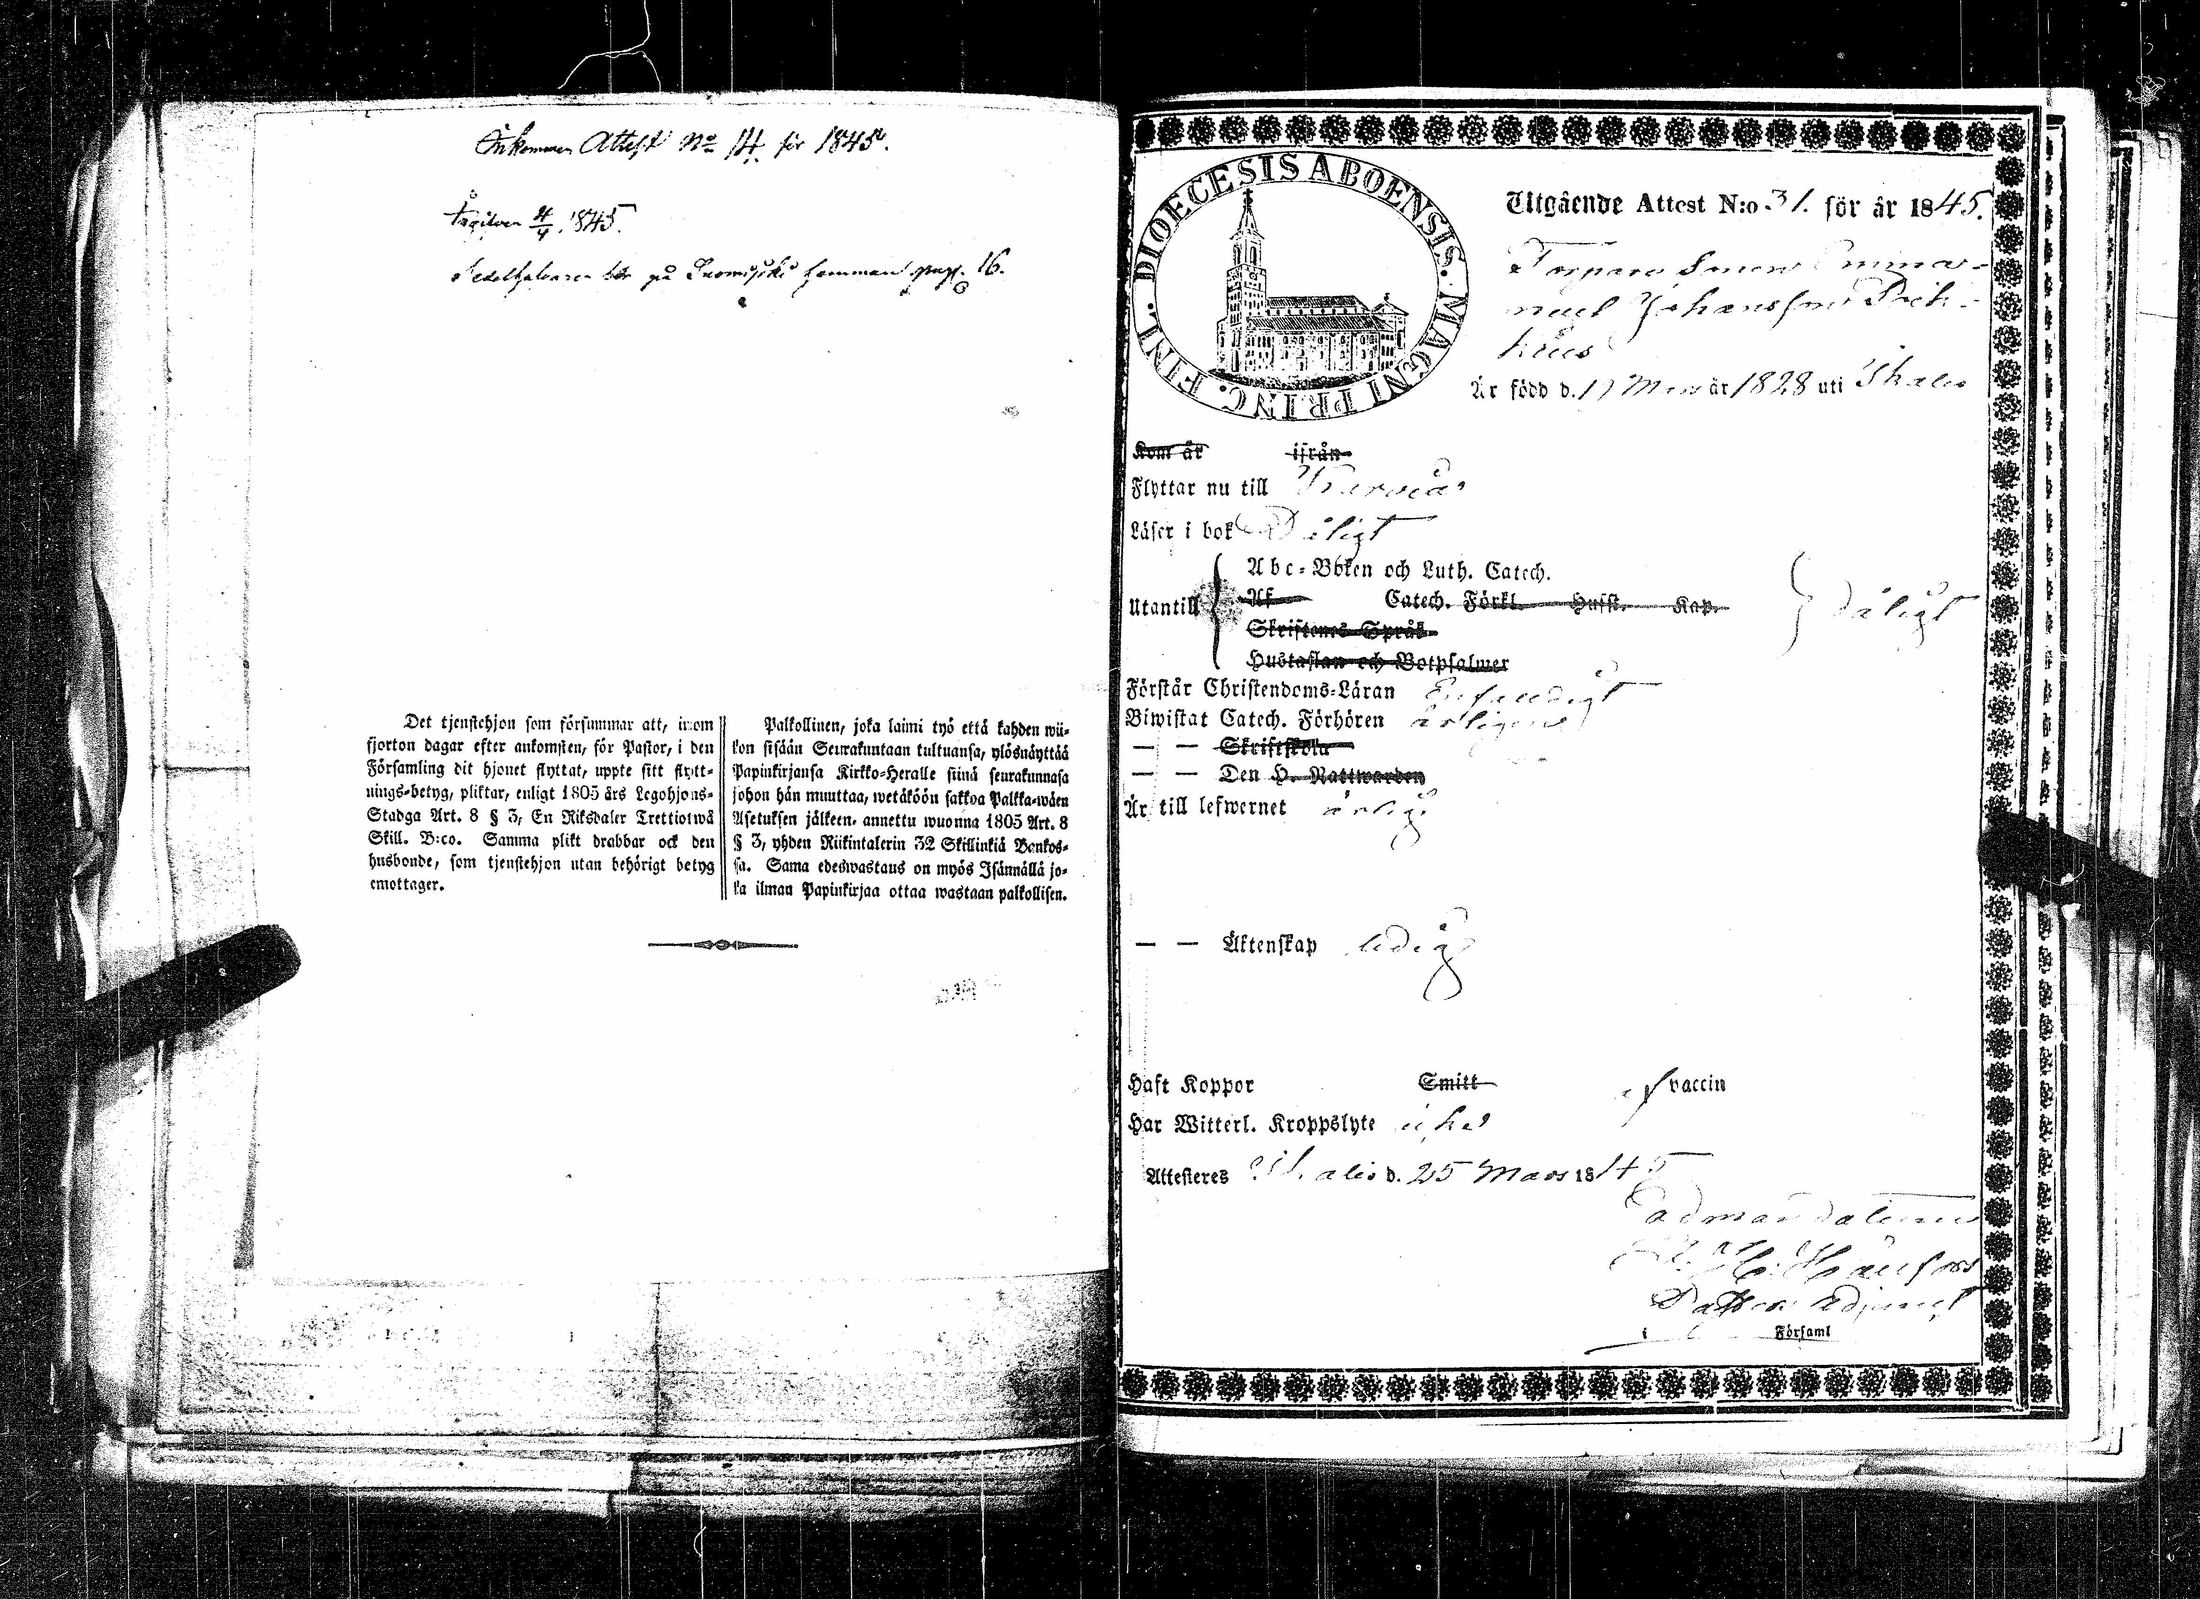 Inkommen Attest No 14. för 1845.
4/4 1845.
bör på hemman pag. 16.
Det tjenstehjon som försummar att, inom
fjorton dagar efter ankomsten, för Pastor, i den
Församling dit hjonet flyttat, uppte sitt flytt-
nings-betyg, pliktar, enligt 1805 års Legohjons-
Stadga Art. 8 § 3, En Riksdaler Trettiotwå
Skill. B:co. Samma plikt drabbar ock den
husbonde, som tjenstehjon utan behörigt betyg
emottager.
Palkollinen, joka laimi lyö että kahden wii-
kon sisään Seurakuntaan tultuansa, ylösnäyttää
Papinkirjansa Kirkko-Heralle siinä seurakunnasa
johon hän muuttaa, wetäköön sakkoa Palkka-wäen
Asetuksen jälkeen, annettu wuonna 1805 Art. 8
§ 3, yhden Riikintalerin 32 Skillinkiä Bankos-
sa. Sama edeswastaus on myös Isännällä jo-
ka ilman Papinkirjaa ottaa wastaan palkollisen.
DIOECESIS ABOENSIS. MAGNI PRINC. FINL.
Utgående Attest N:o 31. för år 1845.
Torpare Sonen Emma-
nuel Johansson
Är född d. 17 Mars år 1828 uti Ikalis
Kom år ifrån
Flyttar nu till Karvia
Läser i bok Dåligt
Utantill
Abc-Boken och Luth. Catech.
Af Catech. Förkl. Hufst. Kap.
Skriftenes Språk
Hustaflan och Botpsalmer
dåligt
Förstår Christendoms-Läran Enfaldigt
Biwistat Catech. Förhören årligen
— — Skriftskola
— — Den H. Nattwarden
Är till lefwernet ärlig
— — Äktenskap ledig
Haft Koppor Smitt af vaccin
Har Witterl. Kroppslyte icke
Attesteres Ikalis d. 25 Mars 1845
ad mandatum
Pastors Adjunct
i Församl